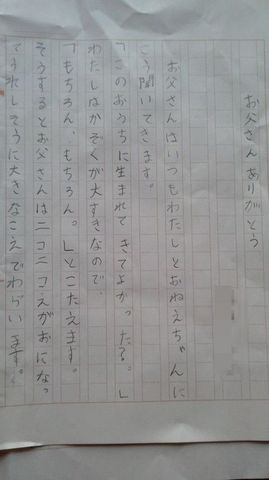 お父さんありがとう
お父さんはいつもわたしとおねえちゃんに
こう聞いてきます。
「このおうちに生まれてきてよかった?。」
わたしはかぞくが大すきなので、
「もちろん、もちろん。」とこたえます。
そうするとお父さんはニコニコえがおになっ
てうれしそうに大きなこえでわらいます。